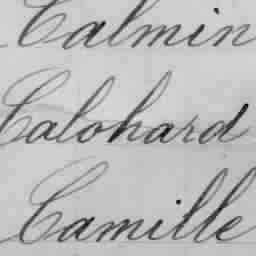 Calmin
Calohard
Camille